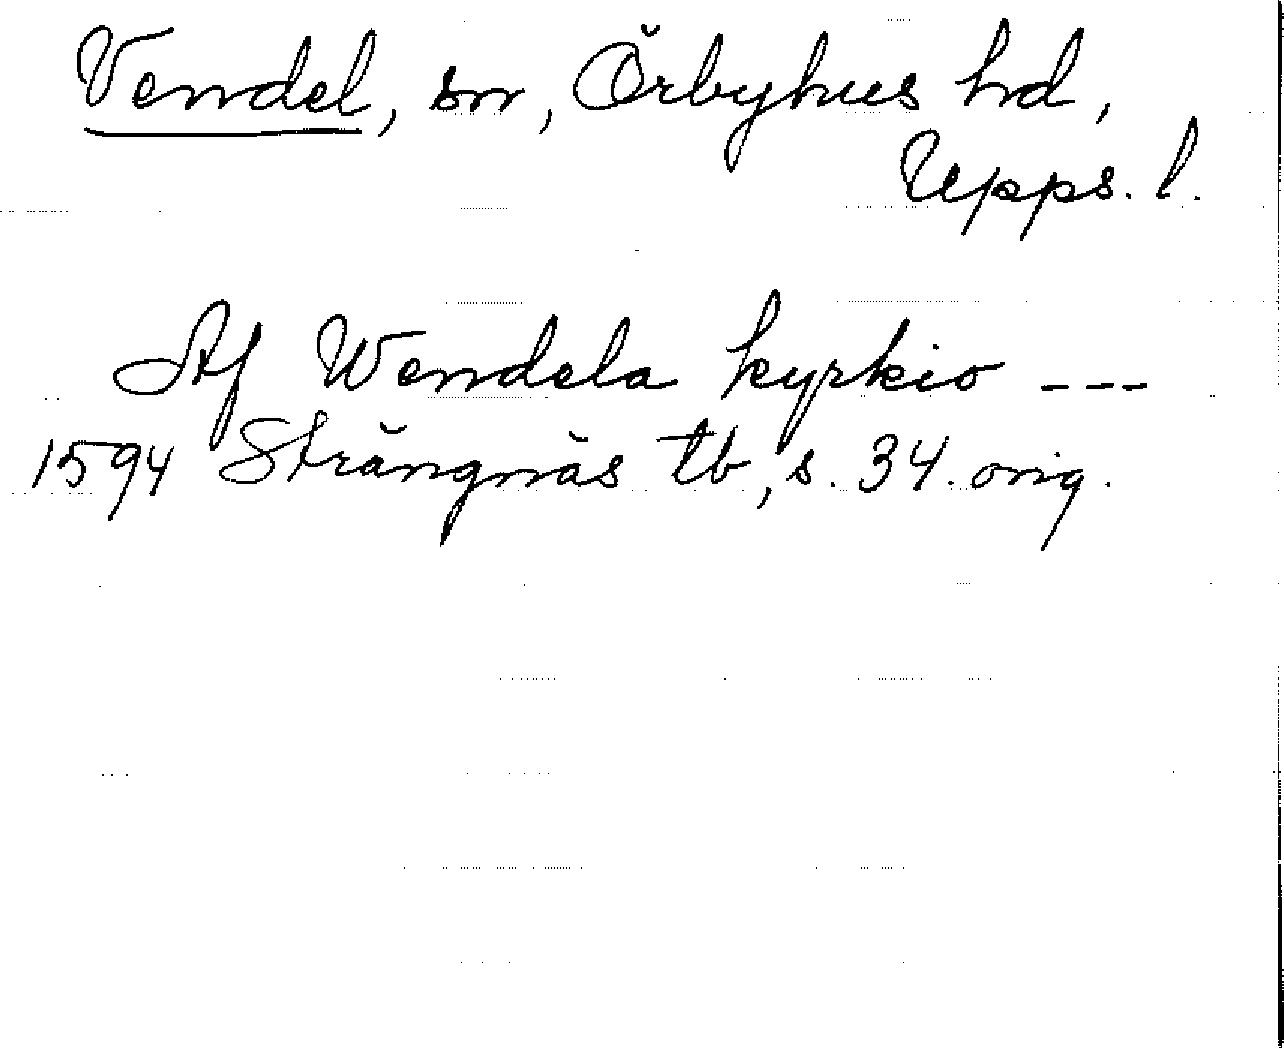 Vendel, sn, Örbyhus hd,
Upps. l.
Af Wendela kyrkio ---
1594 Strängnäs tb, s. 34. orig.